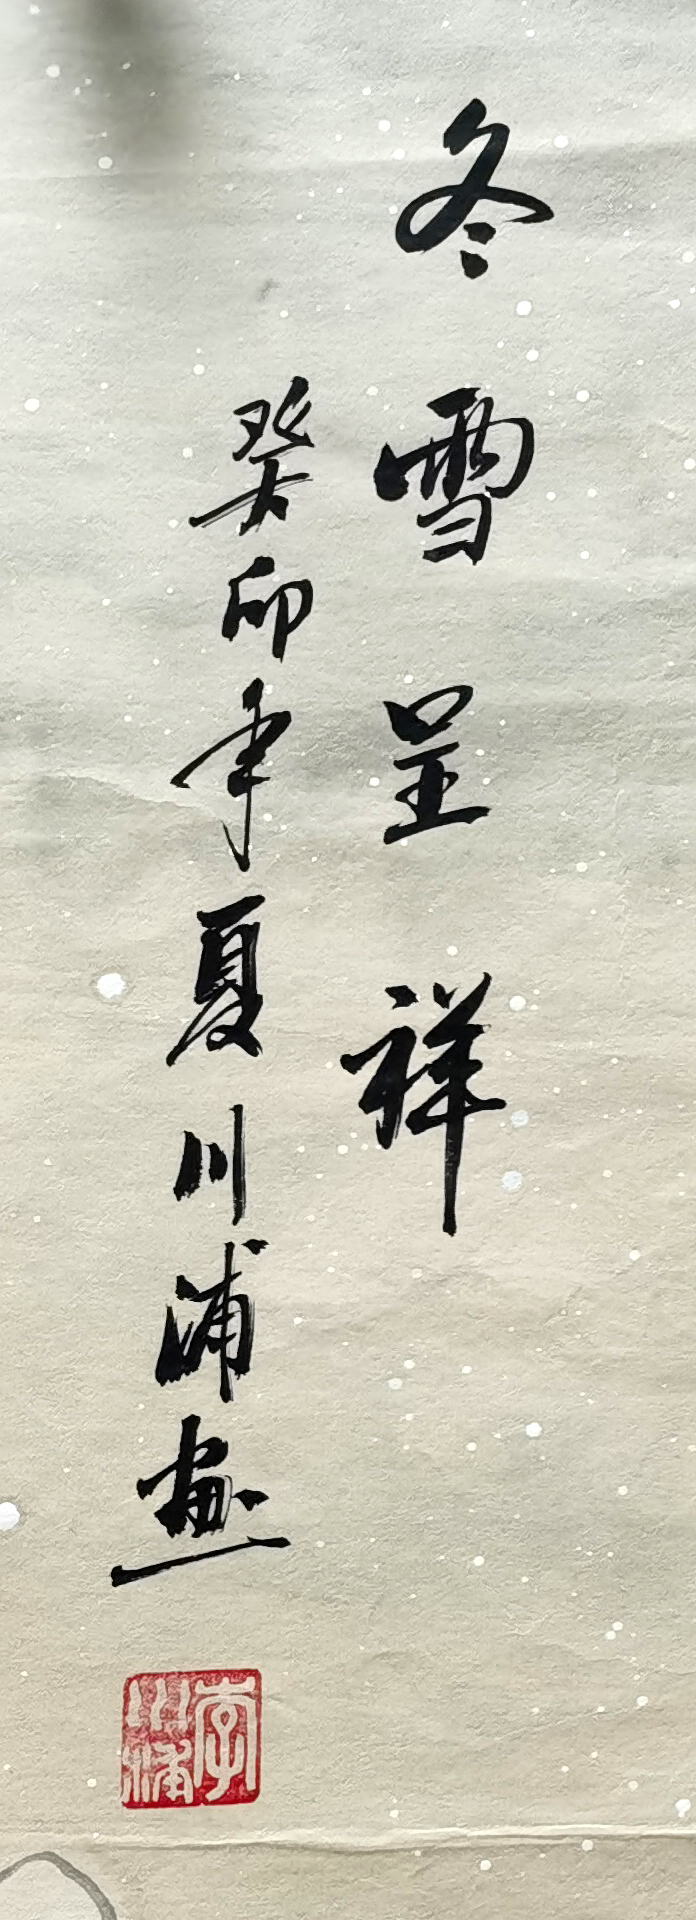 冬雪呈祥
癸卯年夏川浦画
李川浦